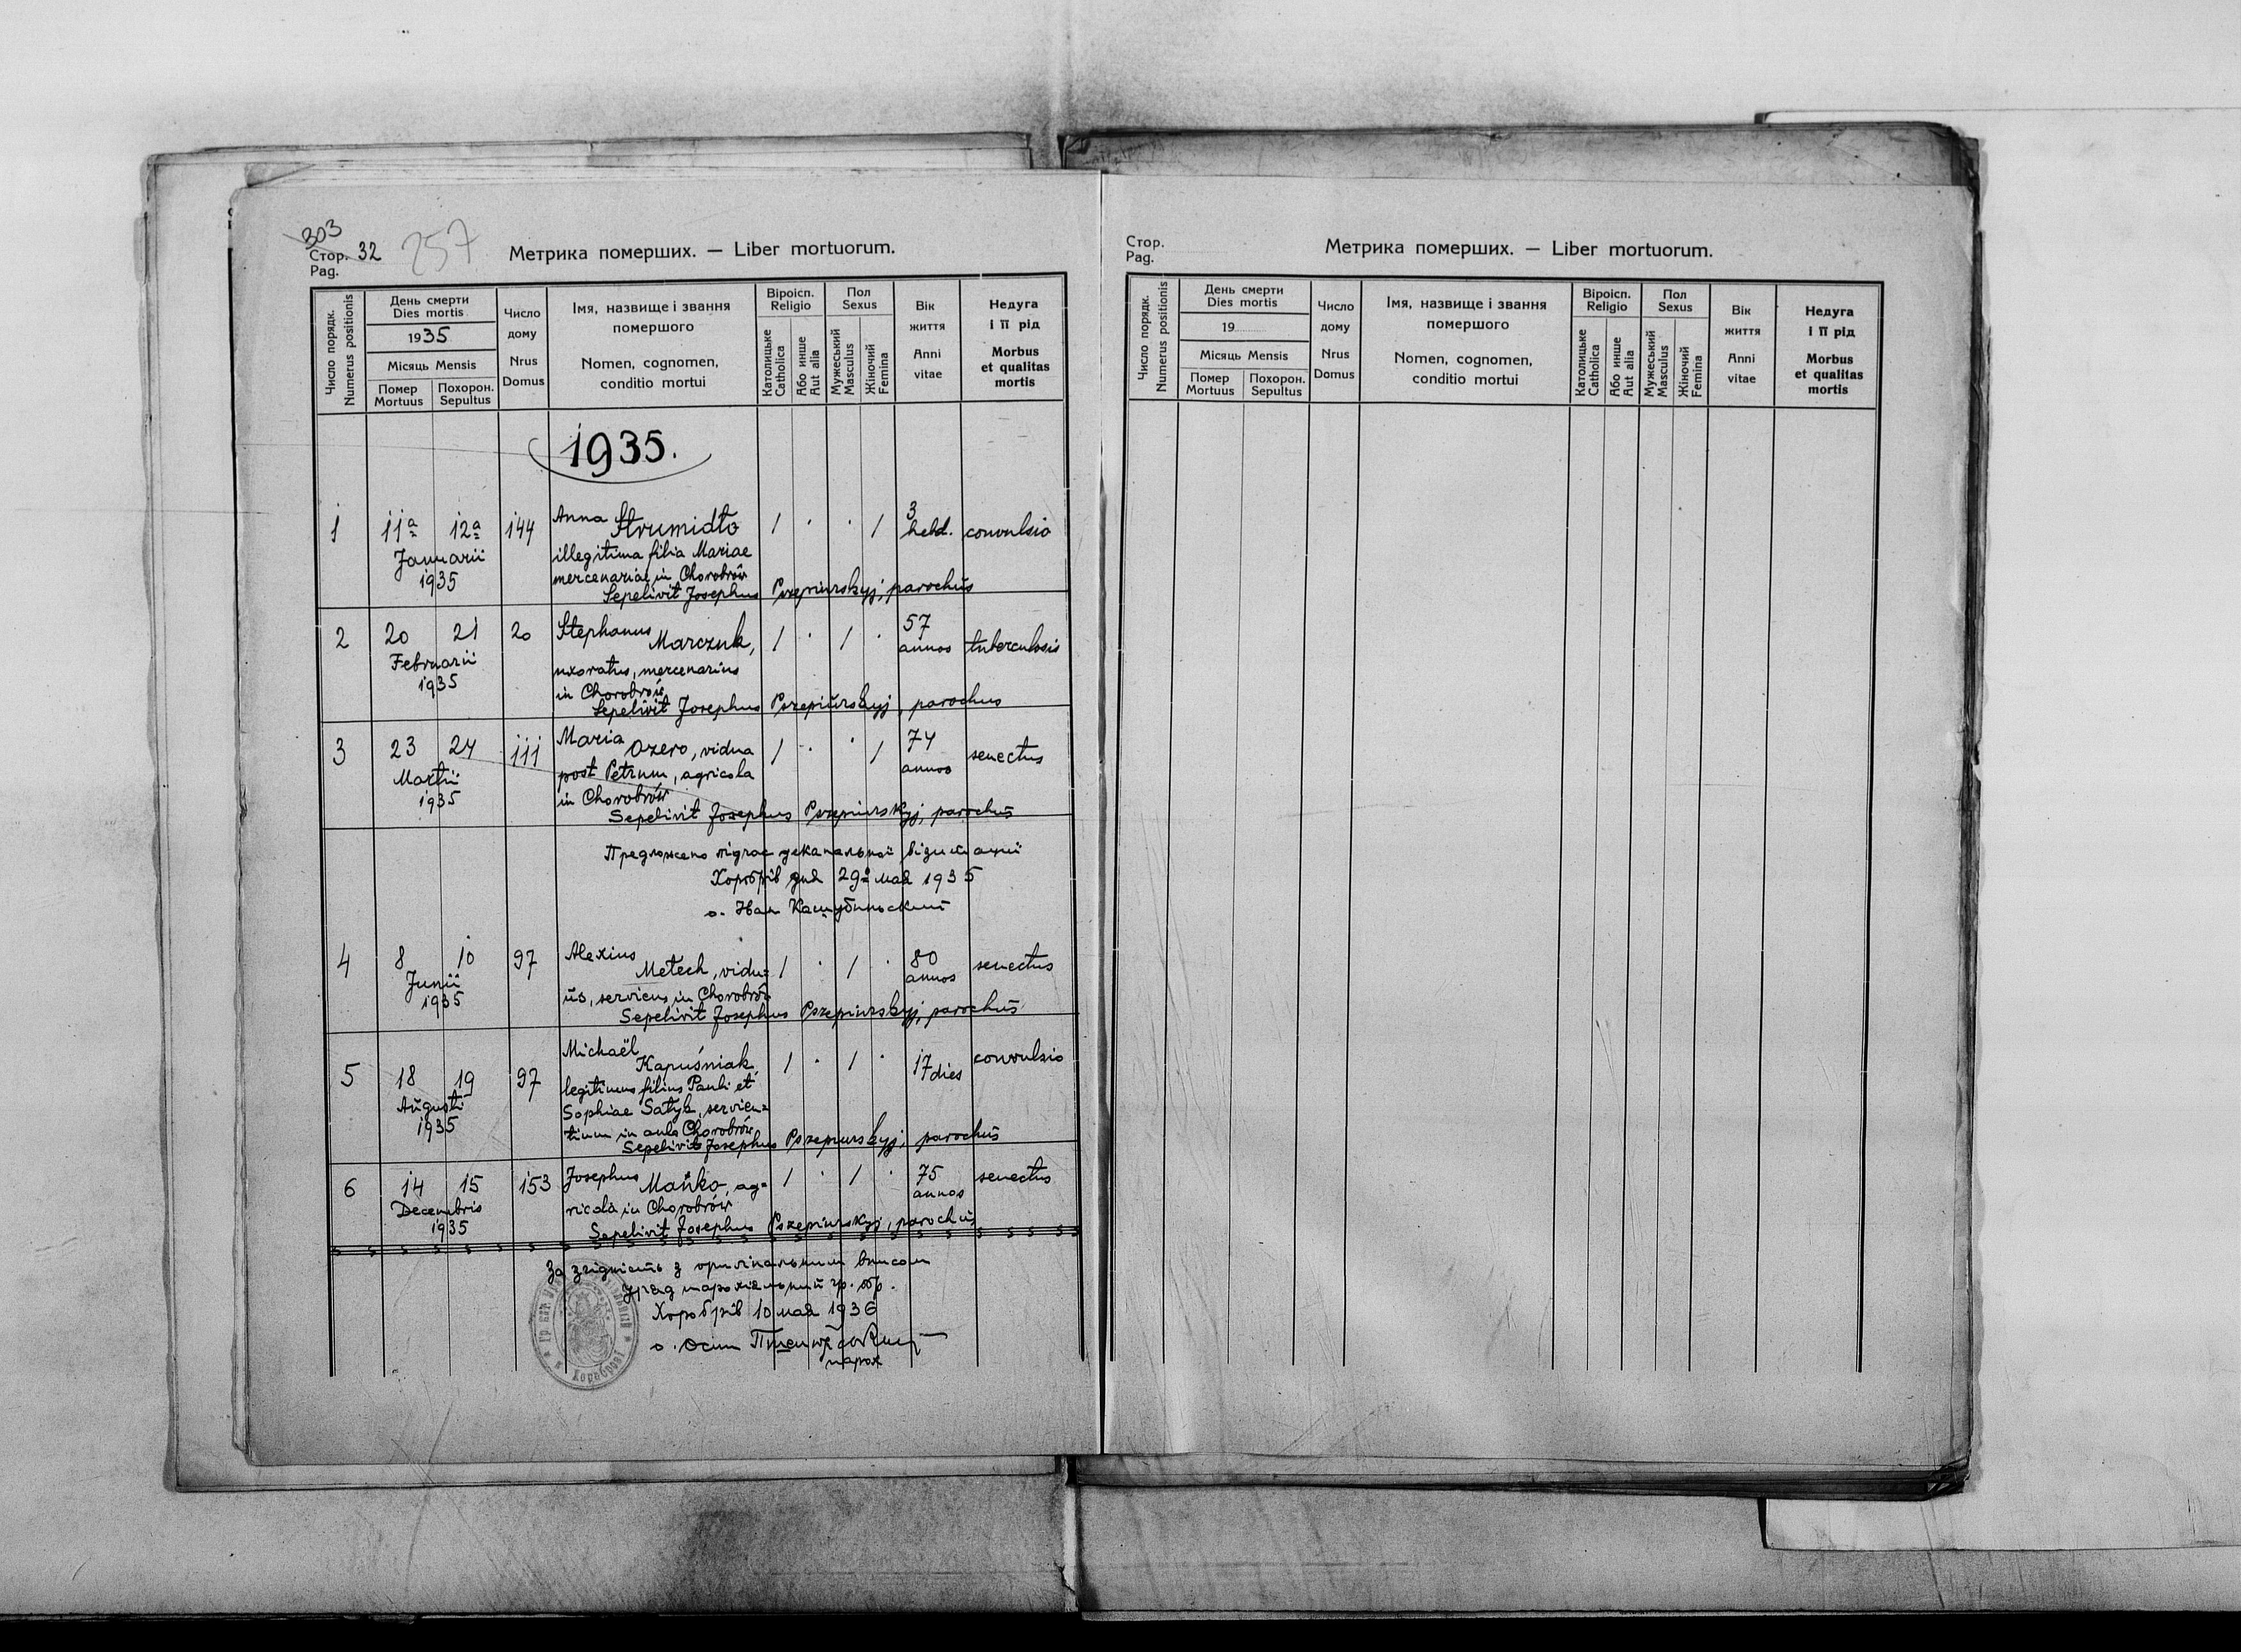 303
Стор. 32
Pag.
257
Метрика померших. — Liber mortuorum.
Число порядк.
Numerus positionis
День смерти
Dies mortis
1935
Місяць Mensis
Помер
Mortuus
Похорон.
Sepultus
Число
дому
Nrus
Domus
Імя, назвище і звання
померного
Nomen, cognomen,
conditio mortui
Віроісп.
Religio
Католицьке
Catholica
Або инше
Aut alia
Пол
Sexus
Мужеський
Masculus
Жіночий
Femina
Вік
життя
Anni
vitae
Недуга
і її рід
Morbus
et qualitas
mortis
1935.
1 11a 12a 144 Anna Strumidło 1 · · 1 3 hebd. convulsio
Januarii
1935
illegitima filia Mariae
mercenariae in Chorobrów
Sepelivit Josephus Pszepiurskyj, parochus
2 20 21 20 Stephanus Marczuk, 1 · 1 · 57 annos tuberculosis
Februarii
1935
uxoratus, mercenarius
in Chorobrów
Sepelivit Josephus Pszepiurskyj, parochus
3 23 24 111 Maria Ozero, vidua 1 · · 1 74 annos senectus
Martii
1935
post Petrum, agricola
in Chorobrów
Sepelivit Josephus Pszepiurskyj, parochus
Предложено підчас деканальної візитації
Хоробрів дня 29 мая 1935
о. Іван
4 8 10 97 Alexius Metech, vidu= 1 · 1 · 80 annos senectus
Junii
1935
us, serviens in Chorobrów
Sepelivit Josephus Pszepiurskyj, parochus
5 18 19 97 Michaël Kapuśniak, 1 · 1 · 17 dies convulsio
Augusti
1935
legitimus filius Pauli et
Sophiae Satyk, servien=
tium in aula Chorobrów
Sepelivit Josephus Pszepiurskyj, parochus
6 14 15 153 Josephus Mańko, ag= 1 · 1 · 75 annos senectus
Decembris
1935
ricola in Chorobrów
Sepelivit Josephus Pszepiurskyj, parochus
За згідність з оригінальним вписом
Уряд парохіяльний гр. обр.
Хоробрів 10 мая 1936
о. Осип
парох
Стор.
Pag.
Метрика померших. — Liber mortuorum.
Число порядк.
Numerus positionis
День смерти
Dies mortis
19
Місяць Mensis
Помер
Mortuus
Похорон.
Sepultus
Число
дому
Nrus
Domus
Імя, назвище і звання
помершого
Nomen, cognomen,
conditio mortui
Віроісп.
Religio
Католицьке
Catholica
Або инше
Aut alia
Пол
Sexus
Мужеський
Masculus
Жіночий
Femina
Вік
життя
Anni
vitae
Недуга
і її рід
Morbus
et qualitas
mortis